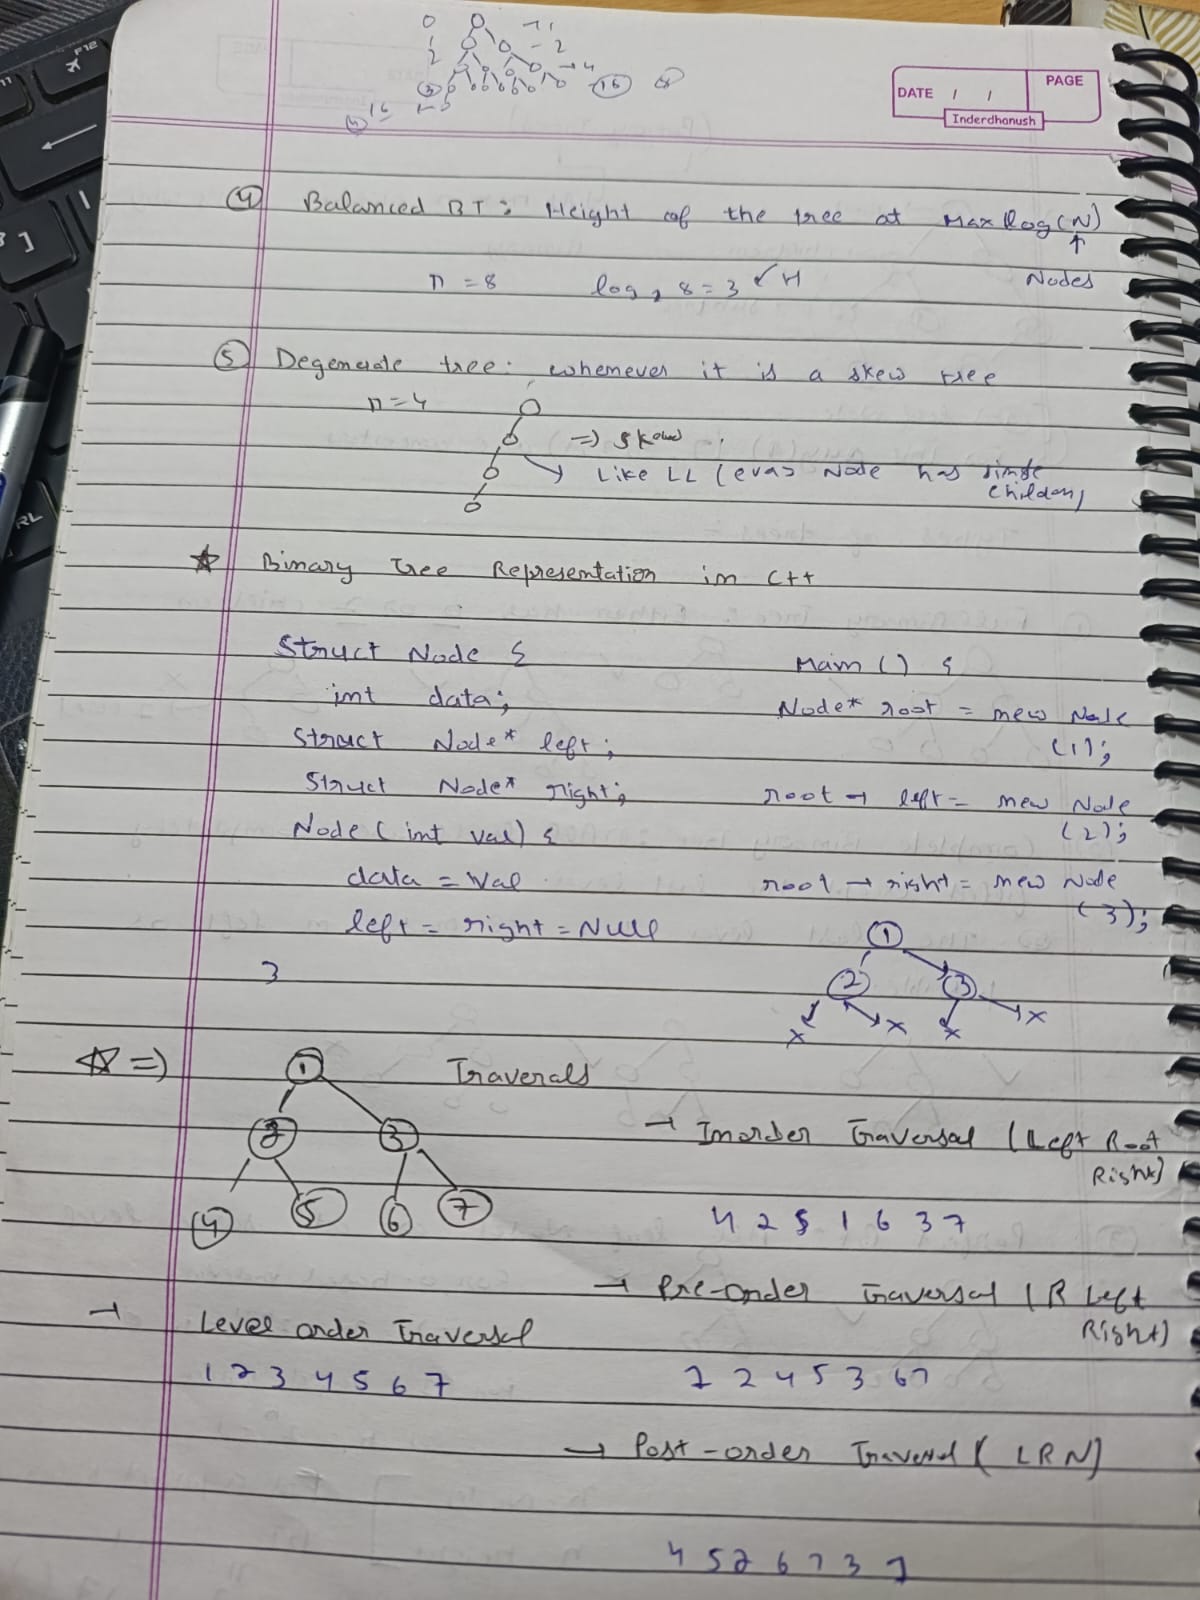 0 → 1
1 - 2
2 → 4
3 - 16
16
4
DATE / / PAGE
Inderdhanush
④ Balanced BT: Height of the tree at Max log(N)
↑
n = 8 log₂ 8 = 3 ↙ H Nodes
⑤ Degenerate tree: whenever it is a skew tree
n=4
=) Skewed
→ Like LL (every Node has single
children)
☆ Binary Tree Representation in C++
Struct Node {
int data;
Struct Node* left;
Struct Node* right;
Node (int val) {
data = Val
left = right = NULL
}
Main () {
Node* root = new Node
(1);
root → left = new Node
(2);
root → right = new Node
(3);
1
2 3
x x x x
☆ =) Traverals
1
2 3
4 5 6 7
→ Inorder Traversal (Left Root
Right)
4 2 5 1 6 3 7
→ Pre-order Traversal (R Left
Right)
1 2 4 5 3 6 7
→ Level order Traversal
1 2 3 4 5 6 7
→ Post-order Traversal (LRN)
4 5 2 6 7 3 1
F12
]
RL